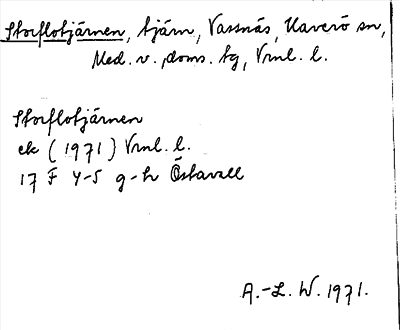 Storflotjärnen, tjärn, Vassnäs, Haverö sn,
Med. v. doms. tg, Vrml. l.
Storflotjärnen
ek (1971) Vrml. l.
17 F 4-5 g-h Östavall
A.-L. W. 1971.